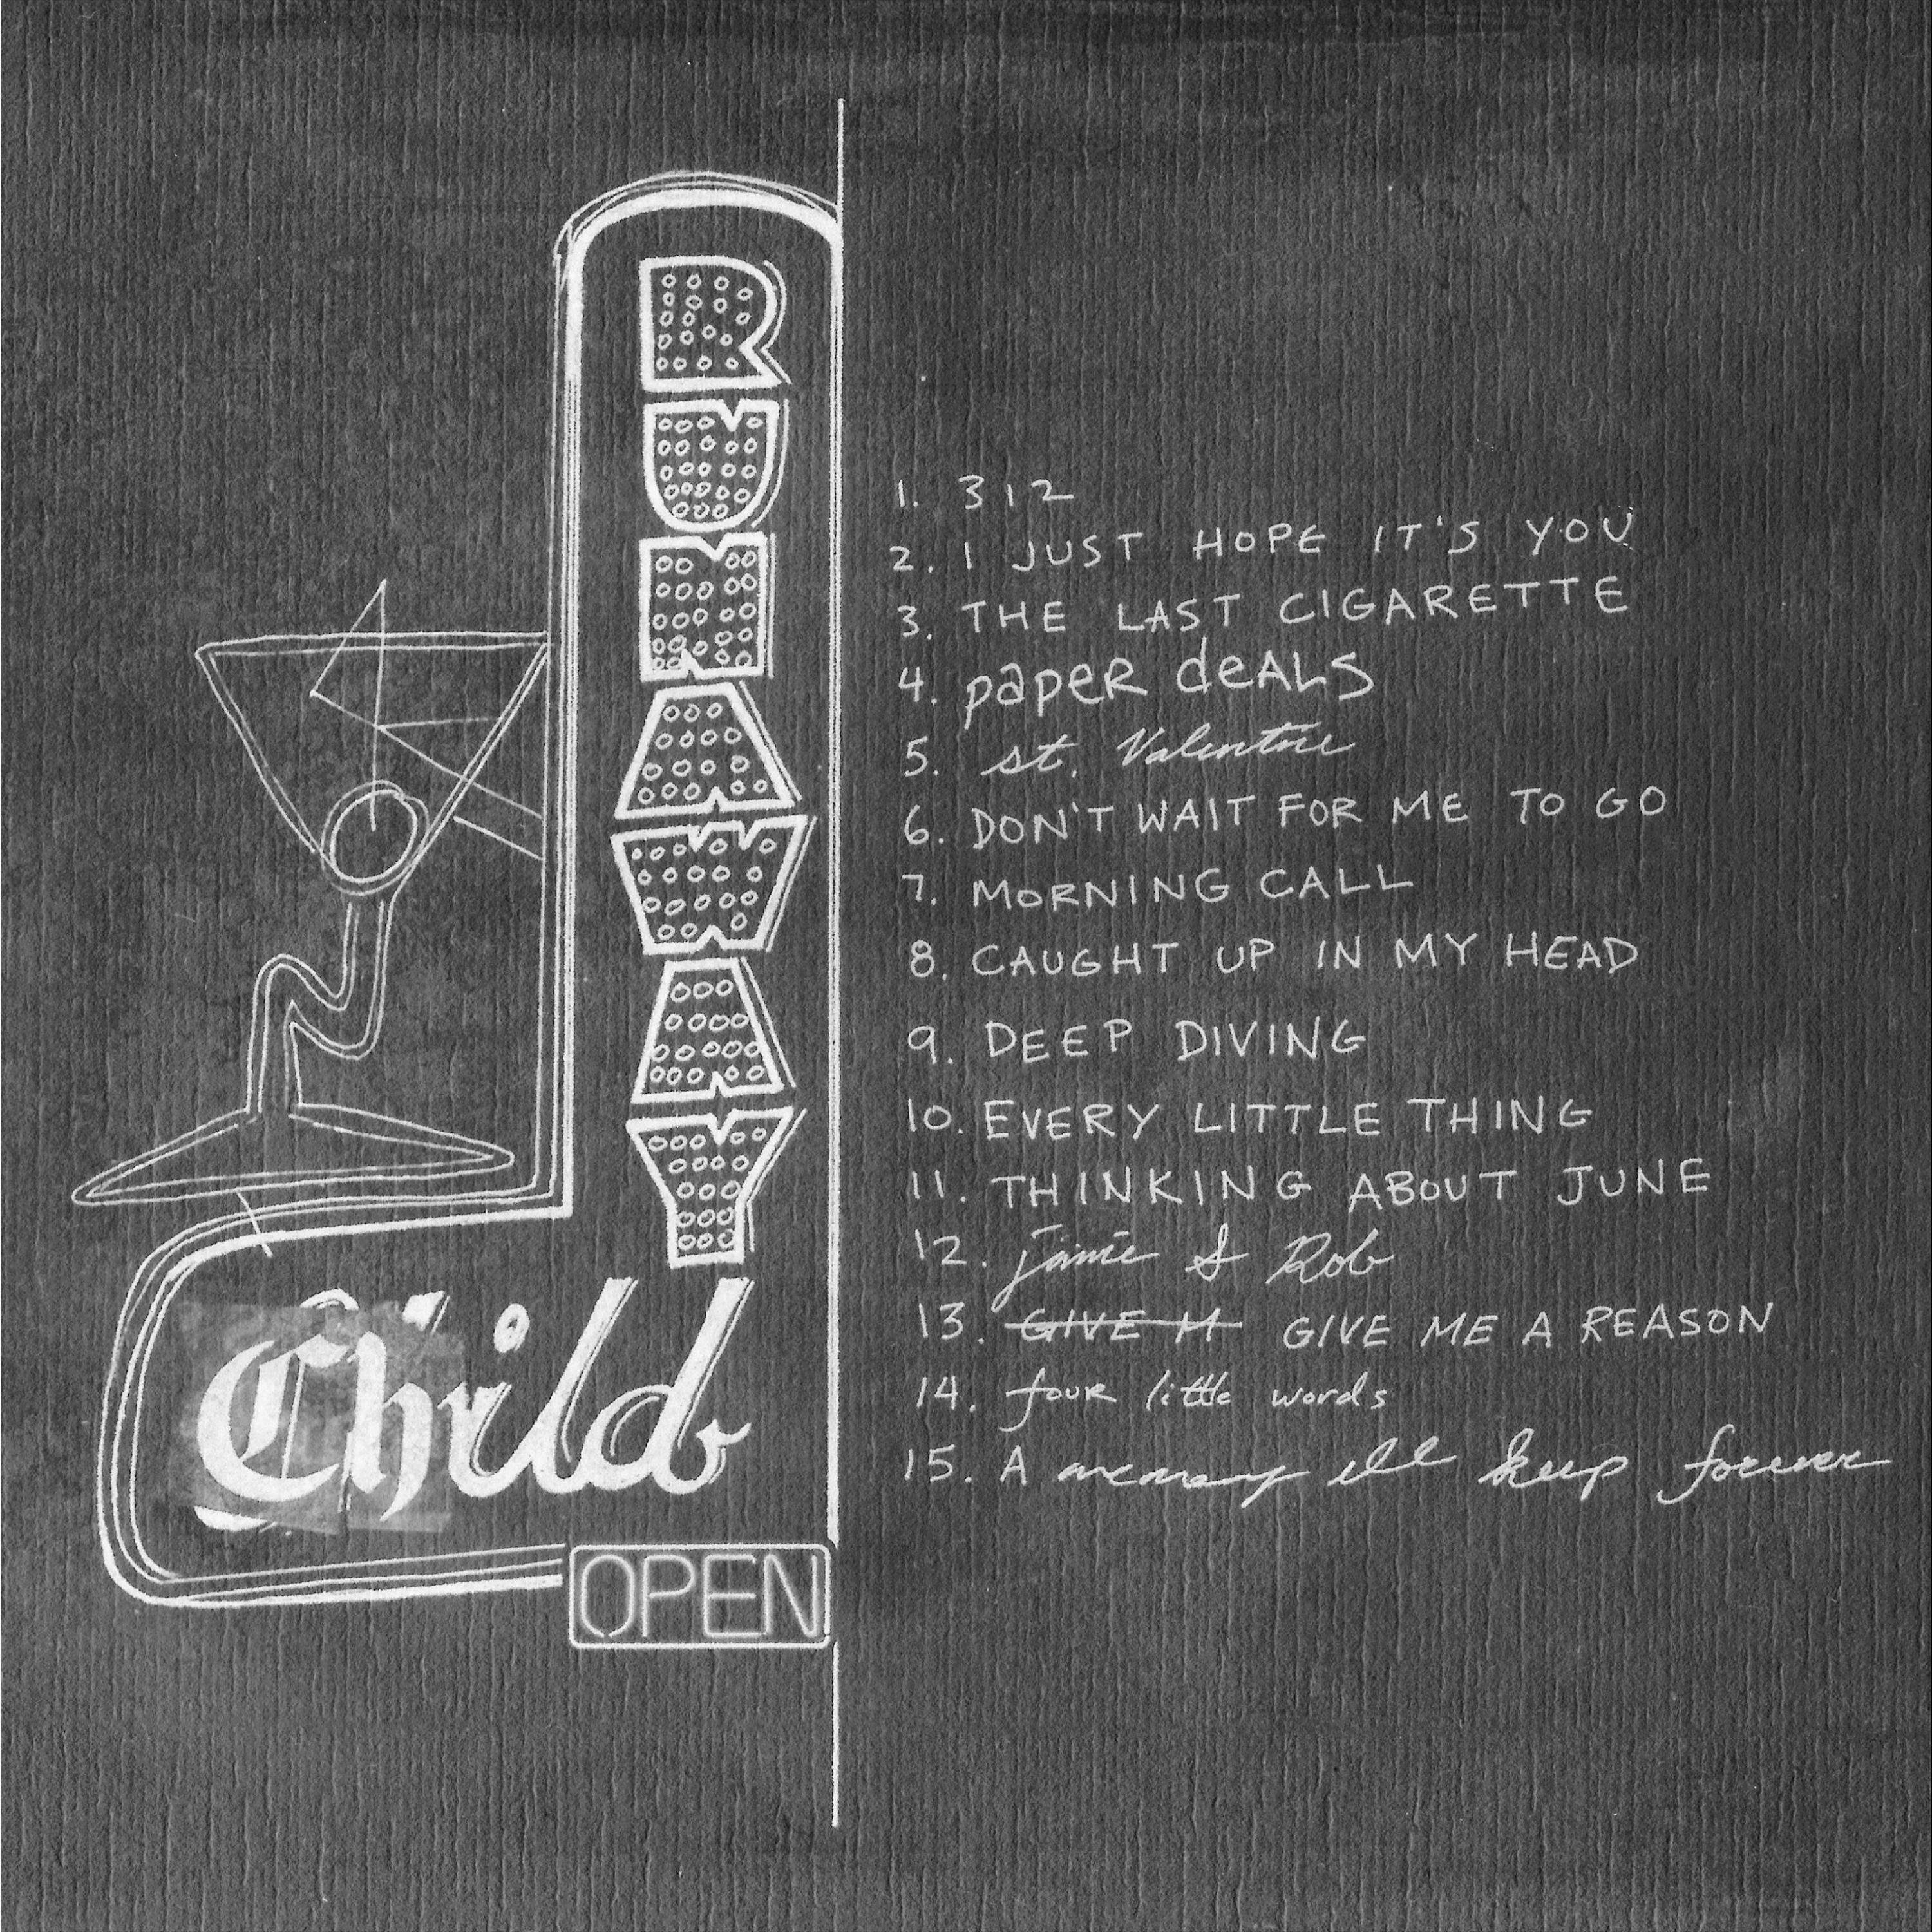 RUNAWAY
Child
OPEN
1. 312
2. I JUST HOPE IT'S YOU
3. THE LAST CIGARETTE
4. paper deALS
5. st. Valentine
6. DON'T WAIT FOR ME TO GO
7. MORNING CALL
8. CAUGHT UP IN MY HEAD
9. DEEP DIVING
10. EVERY LITTLE THING
11. THINKING ABOUT JUNE
12. jamie & Rob
13. GIVE M GIVE ME A REASON
14. four little words
15. A memory ill keep forever